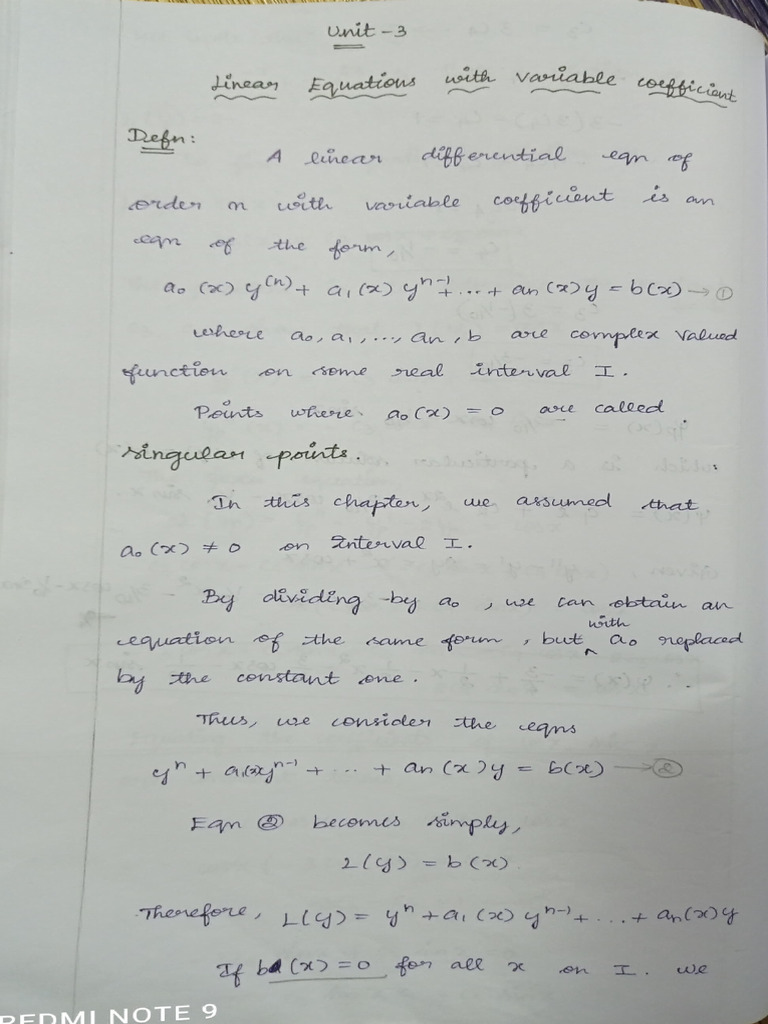 Unit - 3
Linear Equations with Variable coefficient
Defn:
A linear differential eqn of
order n with variable coefficient is an
eqn of the form,
a₀ (x) y⁽ⁿ⁾ + a₁(x) yⁿ⁻¹ + ... + an (x) y = b(x) → ①
where a₀, a₁, ..., an, b are complex valued
function on some real interval I.
Points where a₀(x) = 0 are called
singular points.
In this chapter, we assumed that
a₀(x) ≠ 0 on Interval I.
By dividing by a₀, we can obtain an
equation of the same form, but with a₀ replaced
by the constant one.
Thus, we consider the eqns
yⁿ + a₁(x)yⁿ⁻¹ + ... + an(x)y = b(x) → ②
Eqn ② becomes simply,
L(y) = b(x)
Therefore, L(y) = yⁿ + a₁(x) yⁿ⁻¹ + ... + an(x)y
If b(x) = 0 for all x on I. we
REDMI NOTE 9